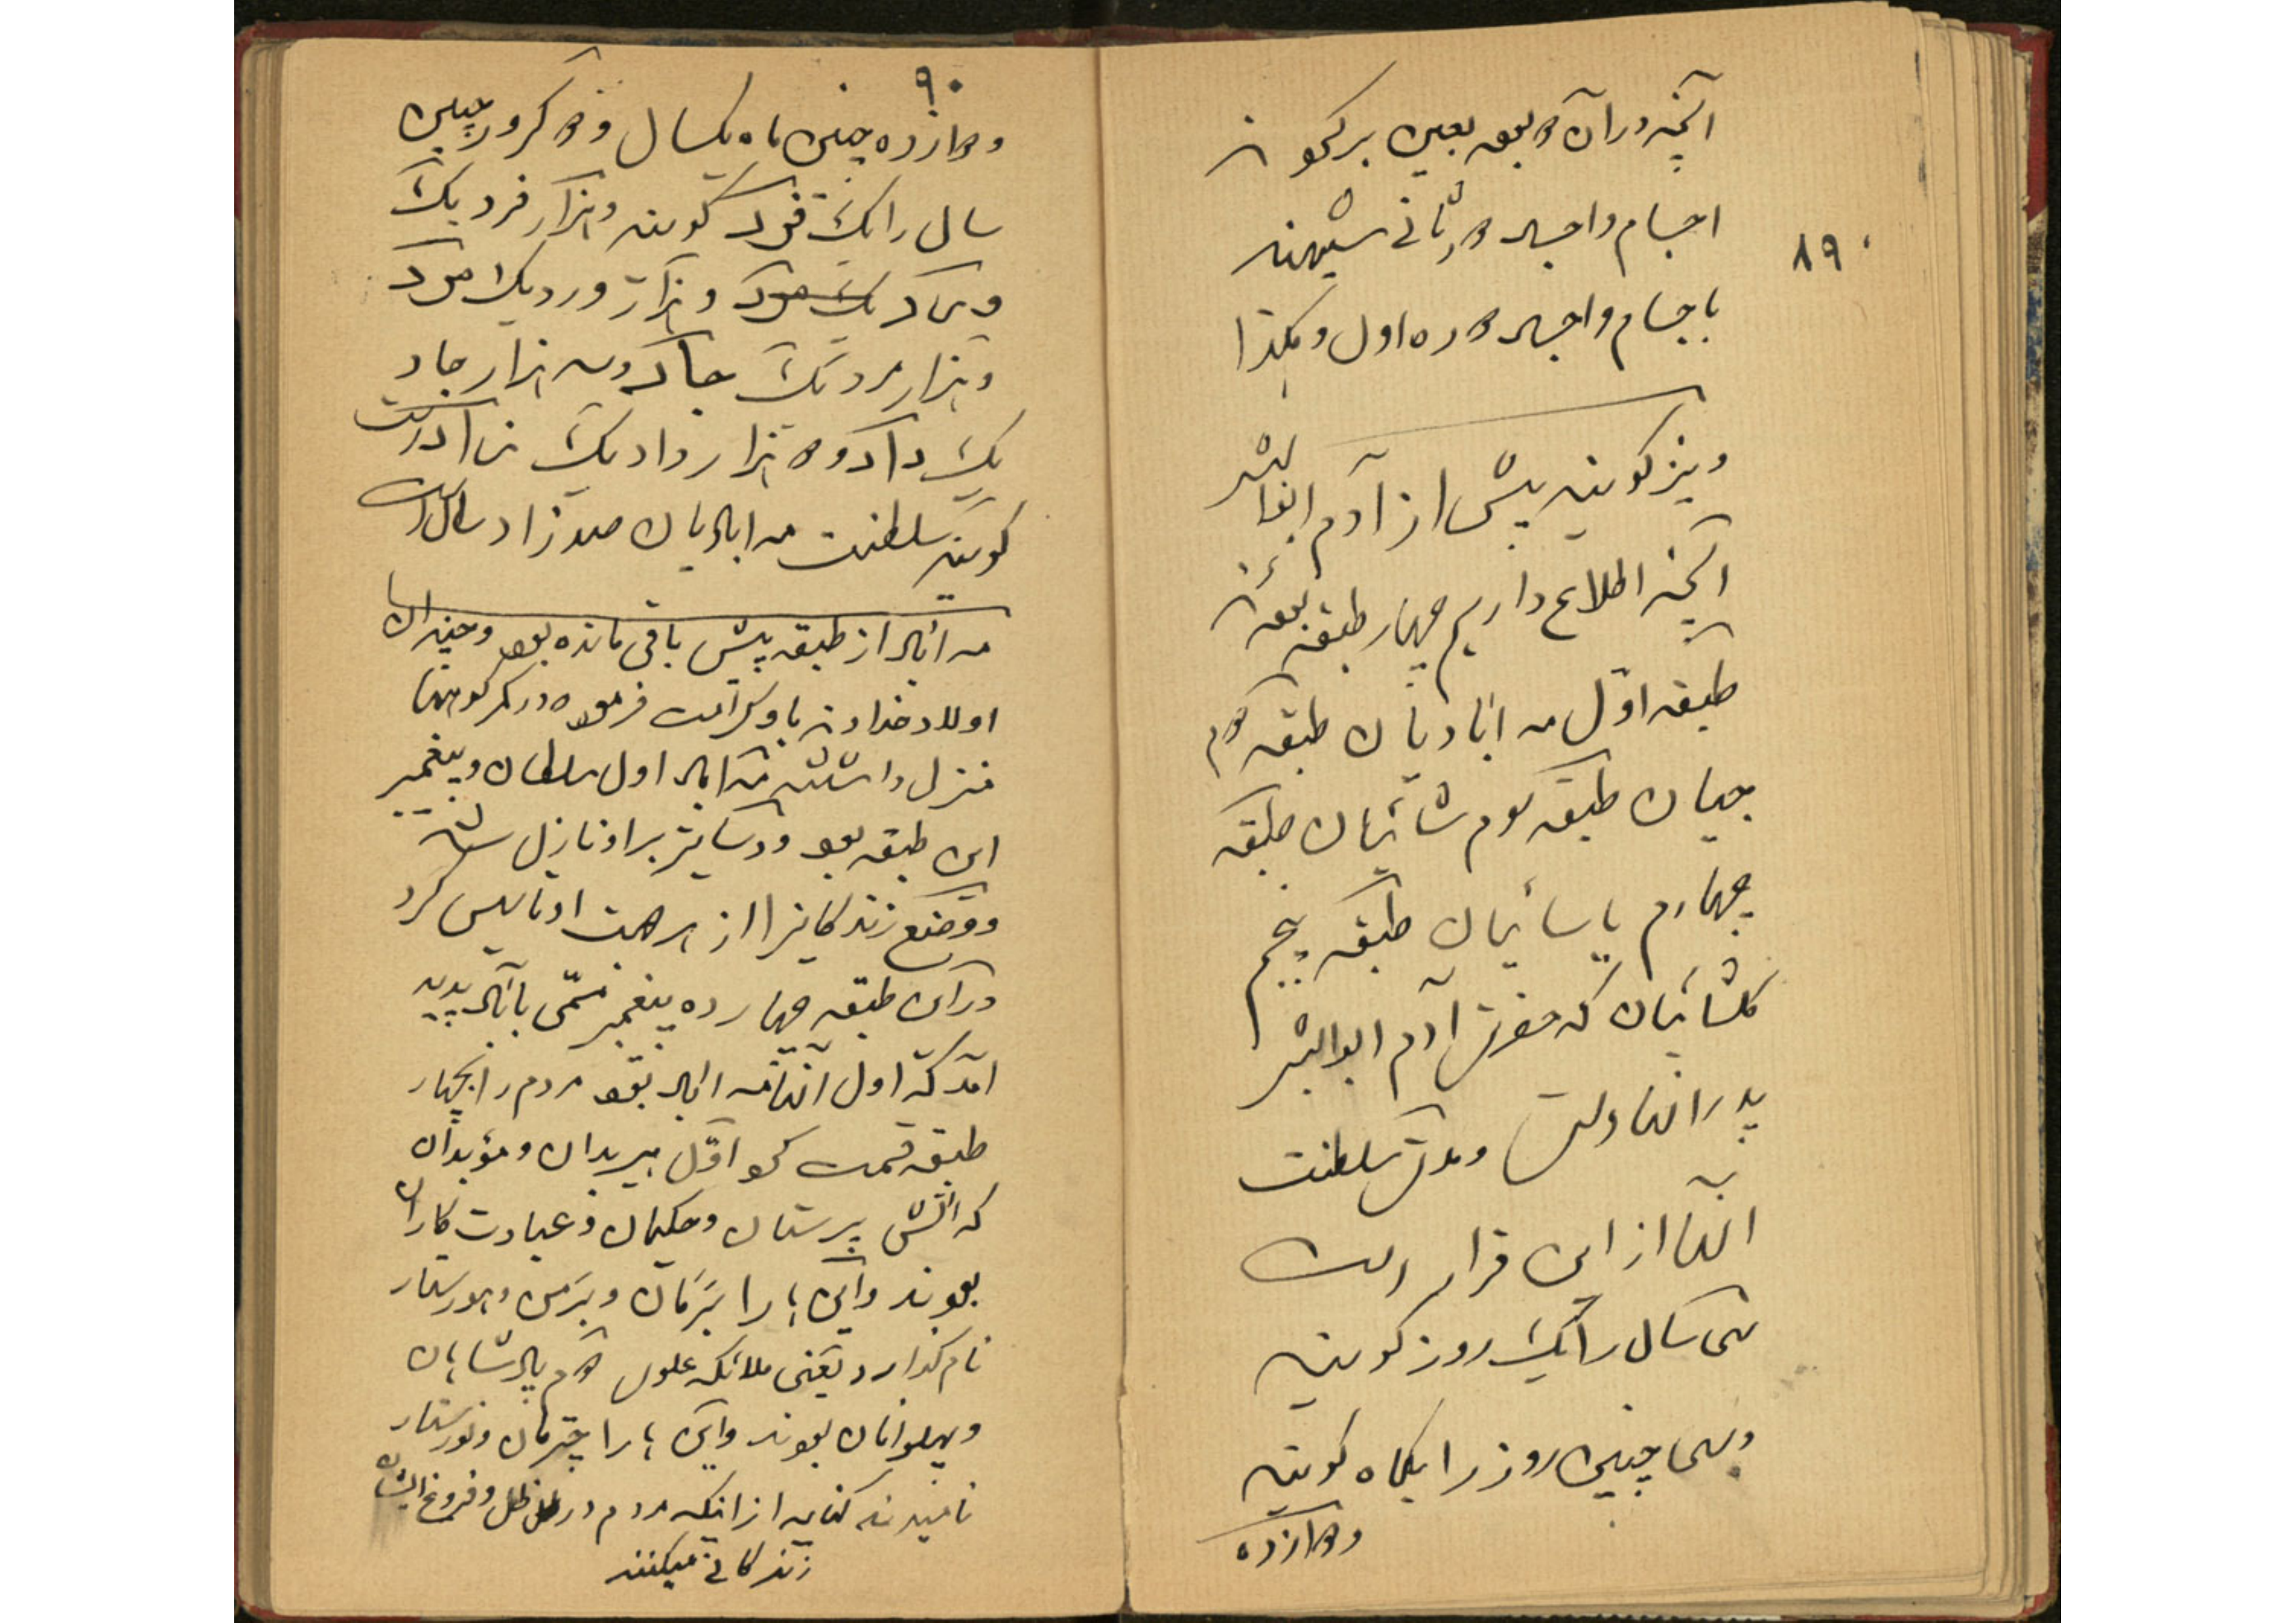 ۸۹
آنچه در آن دوره بوده بعینه برگردد
اجسام و اجساد دوره ثانی شبیهند
باجسام و اجساد دوره اول و هکذا
و نیز گویند پیش از آدم ابوالبشر
آنچه اطلاع داریم چهار طبقه بوده‌اند
طبقه اوّل مه‌آبادیان طبقه دوم
جیان طبقه سوم شائیان طبقه
چهارم یاسائیان طبقه پنجم
گلشائیان که حضرت آدم ابوالبشر
پدر آنهاست و مدت سلطنت
آنها از این قرار است
سی سال را یک روز گویند
و سی چنین روز را یکماه گویند
دوازده
۹۰
دوازده چنین ماه یکسال و کرور چنین
سال را یک فرد گویند و هزار فرد یک
ورد و هزار ورد یک مرد
و هزار مرد یک جاد و سه هزار جاد
یک واد و دو هزار واد یک زاد است
گویند سلطنت مه‌آبادیان صد زاد سال است
مه‌آباد از طبقه پیش باقی مانده بود و چندان
اولاد خداوند باو کرامت فرموده در کمر کوهها
منزل داشتند مه‌آباد اول سلطان و پیغمبر
این طبقه بود و دساتیر بر او نازل شد
و وضع زندگانی را از هر جهت او تاسیس کرد
در این طبقه چهارده پیغمبر مسمّی بآباد پدید
آمد که اول آنها مه‌آباد بود مردم را بچهار
طبقه قسمت کرد اوّل هیربدان و مؤبدان
که آتش پرستان و حکیمان و عبادت کاران
بودند و این‌ها را برَمان و برَمن و هورستار
نام گذارد یعنی ملائکه علوی دوم پادشاهان
و پهلوانان بودند و این‌ها را چترمان و نورستار
نامیدند کنایه از اینکه مردم در ظل و فروغ ایشان
زندگانی میکنند